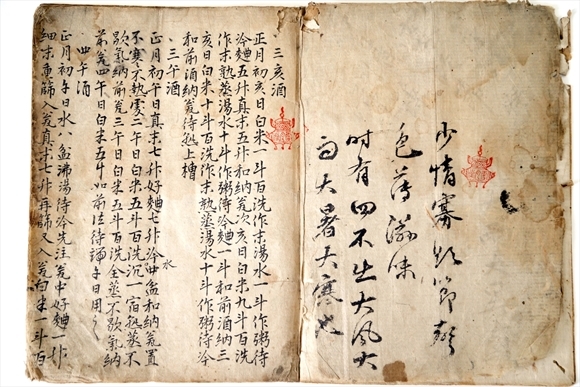 少情寡欲節聲
色薄滋味
時有四不出大風大
雨大暑大寒也
三亥酒
正月初亥日白米一斗百洗作末湯水一斗作粥待
冷麯五升真末五升和納瓮次亥日白米九斗百洗
作末熟蒸湯水十斗作粥待冷麯一斗和前酒納三
亥日白米十斗百洗作末熟蒸湯水十斗作粥待冷
和前酒納瓮待熟上槽
三午酒
正月初午日真末七升好麯七升冷水四盆和納瓮置
不寒不熱處二午日白米五斗百洗沉一宿熟蒸不
歇氣納前瓮三午日白米五斗百洗全蒸不歇氣納
前瓮四午日白米五斗如前法待端午日用
四午酒
正月初午日水八盆沸湯待冷先注瓮中好麯一升
細末重篩入瓮真末七升再篩又入瓮白米一斗百